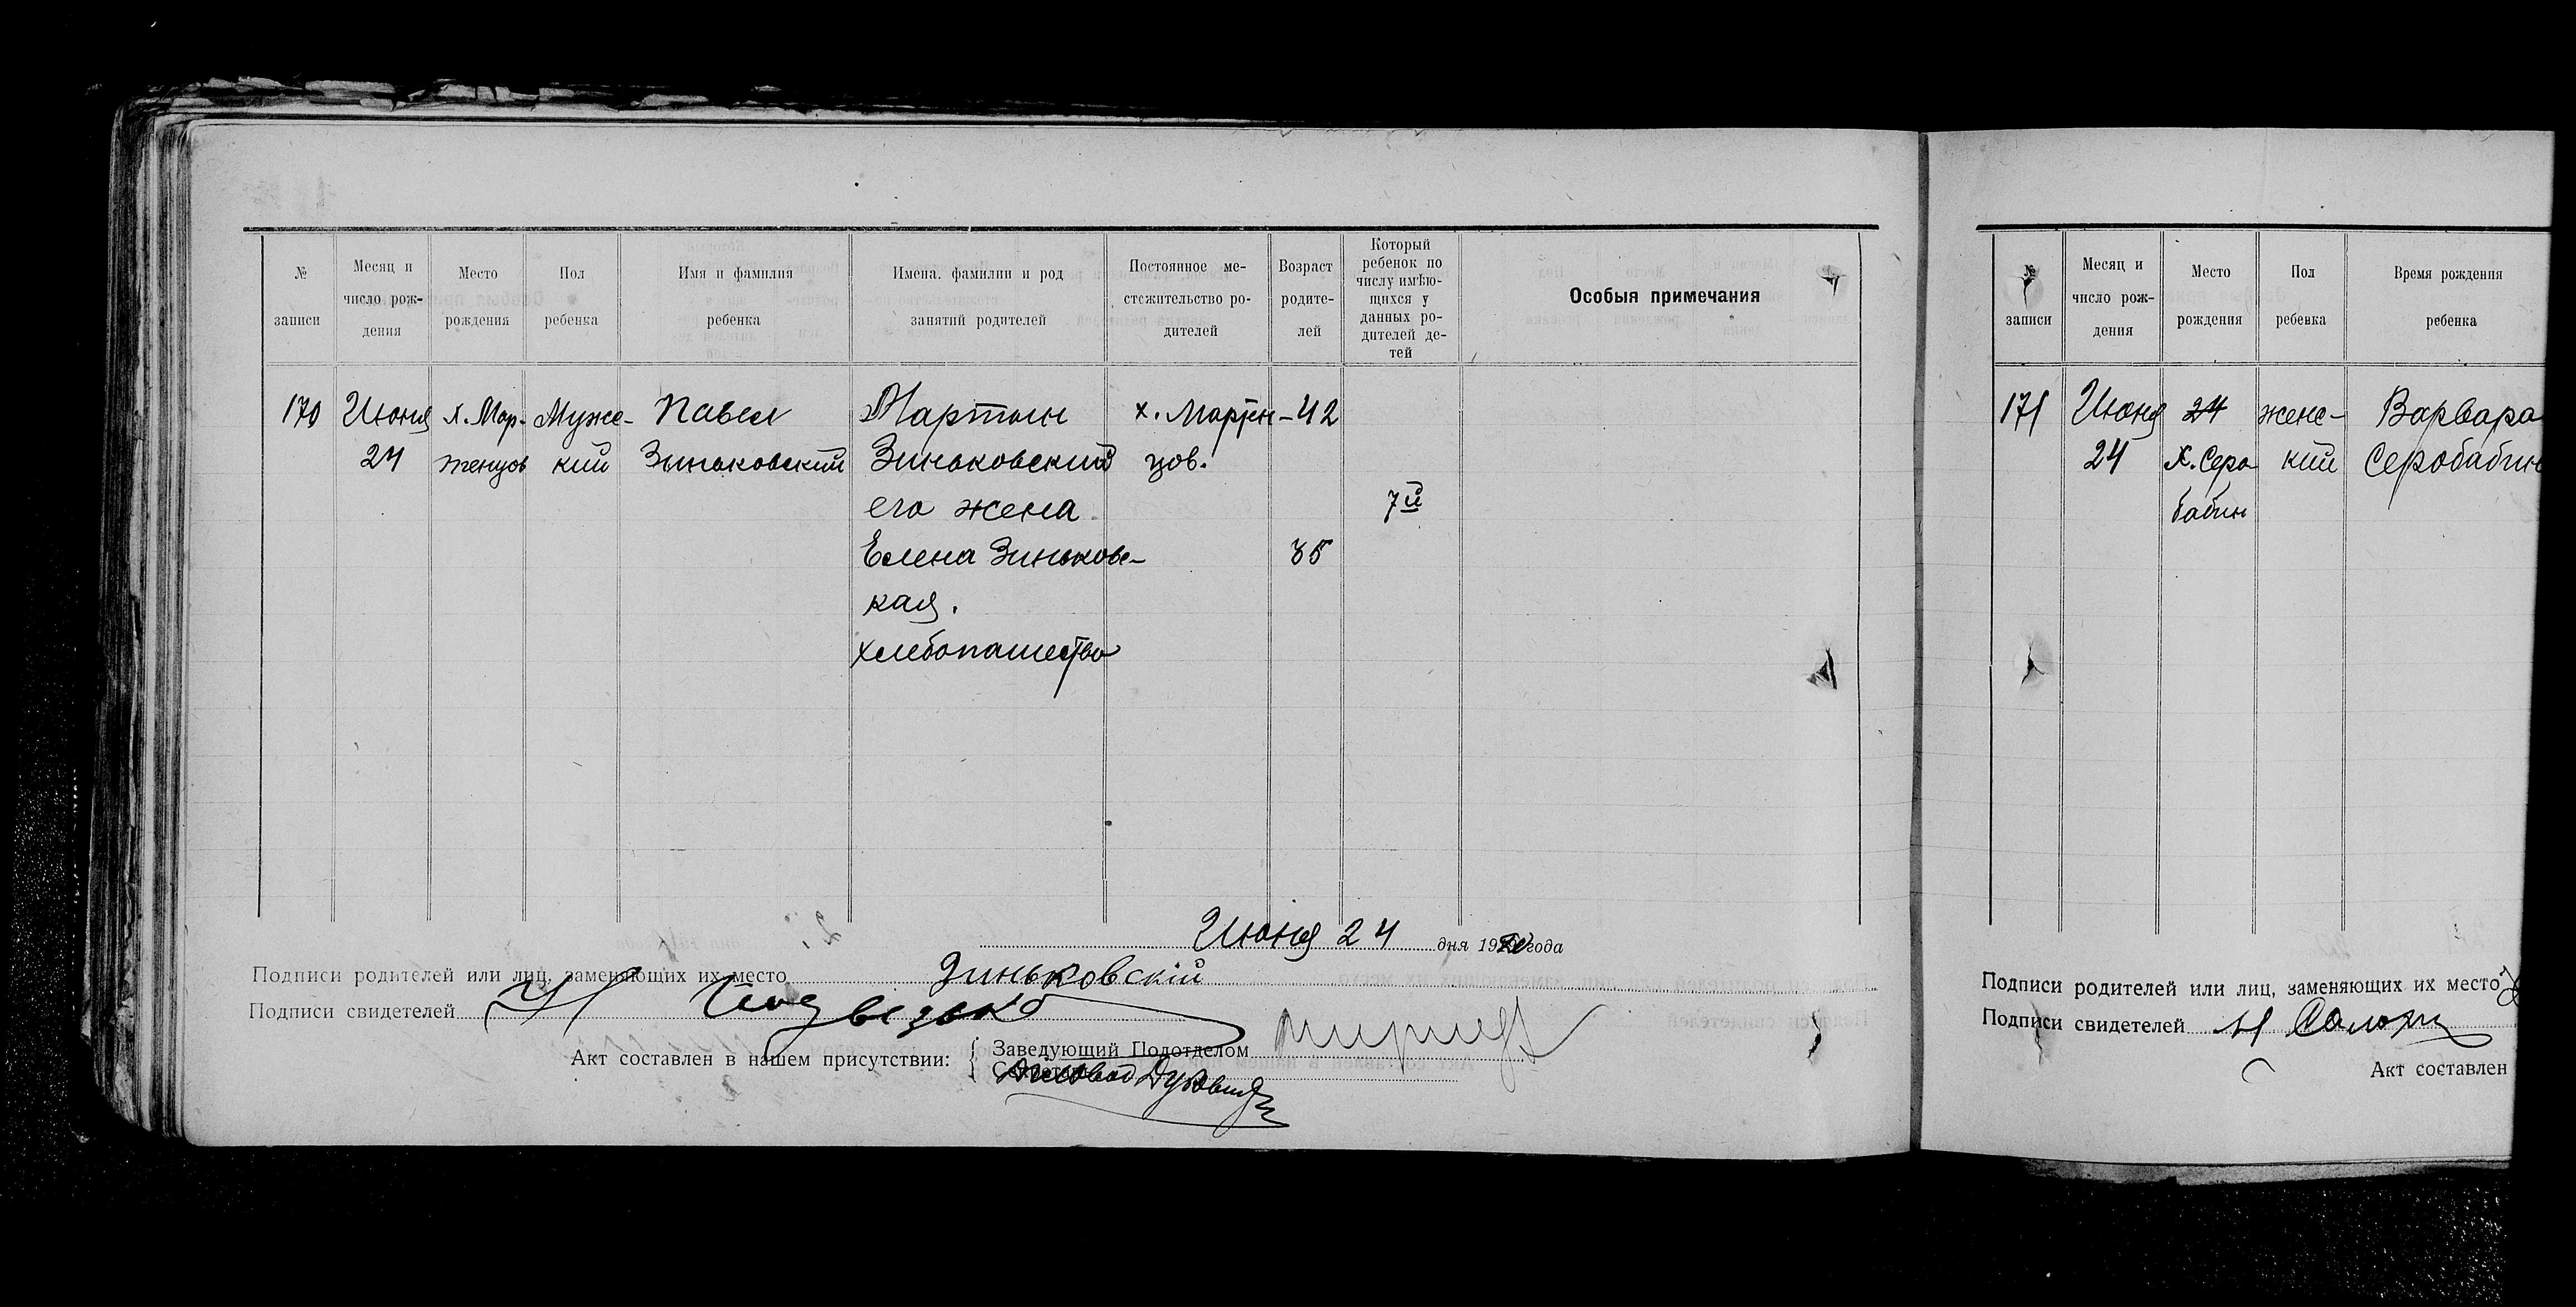 № записи
Месяц и число рождения
Место рождения
Пол ребенка
Имя и фамилия ребенка
Имена, фамилии и род занятий родителей
Постоянное местожительство родителей
Возраст родителей
Который ребенок по числу имѣющихся у данных родителей детей
Особыя примечания
170 Июня х. Мар- Муже- Павел Мартын х. Мартен- 42
24 тенцов кий Зиньковский Зиньковский цов.
его жена 7й
Елена Зиньковс- 35
кая.
хлебопашество
Июня 24 дня 1920 года
Подписи родителей или лиц, заменяющих их место Зиньковскій
Подписи свидетелей
Акт составлен в нашем присутствии: Заведующий Подотделом
№ записи
Месяц и число рождения
Место рождения
Пол ребенка
Время рождения ребенка
171 Июня 24 женс- Варвара
24 х. Серо кий Серобабин
бабин
Подписи родителей или лиц, заменяющих их место
Подписи свидетелей
Акт составлен